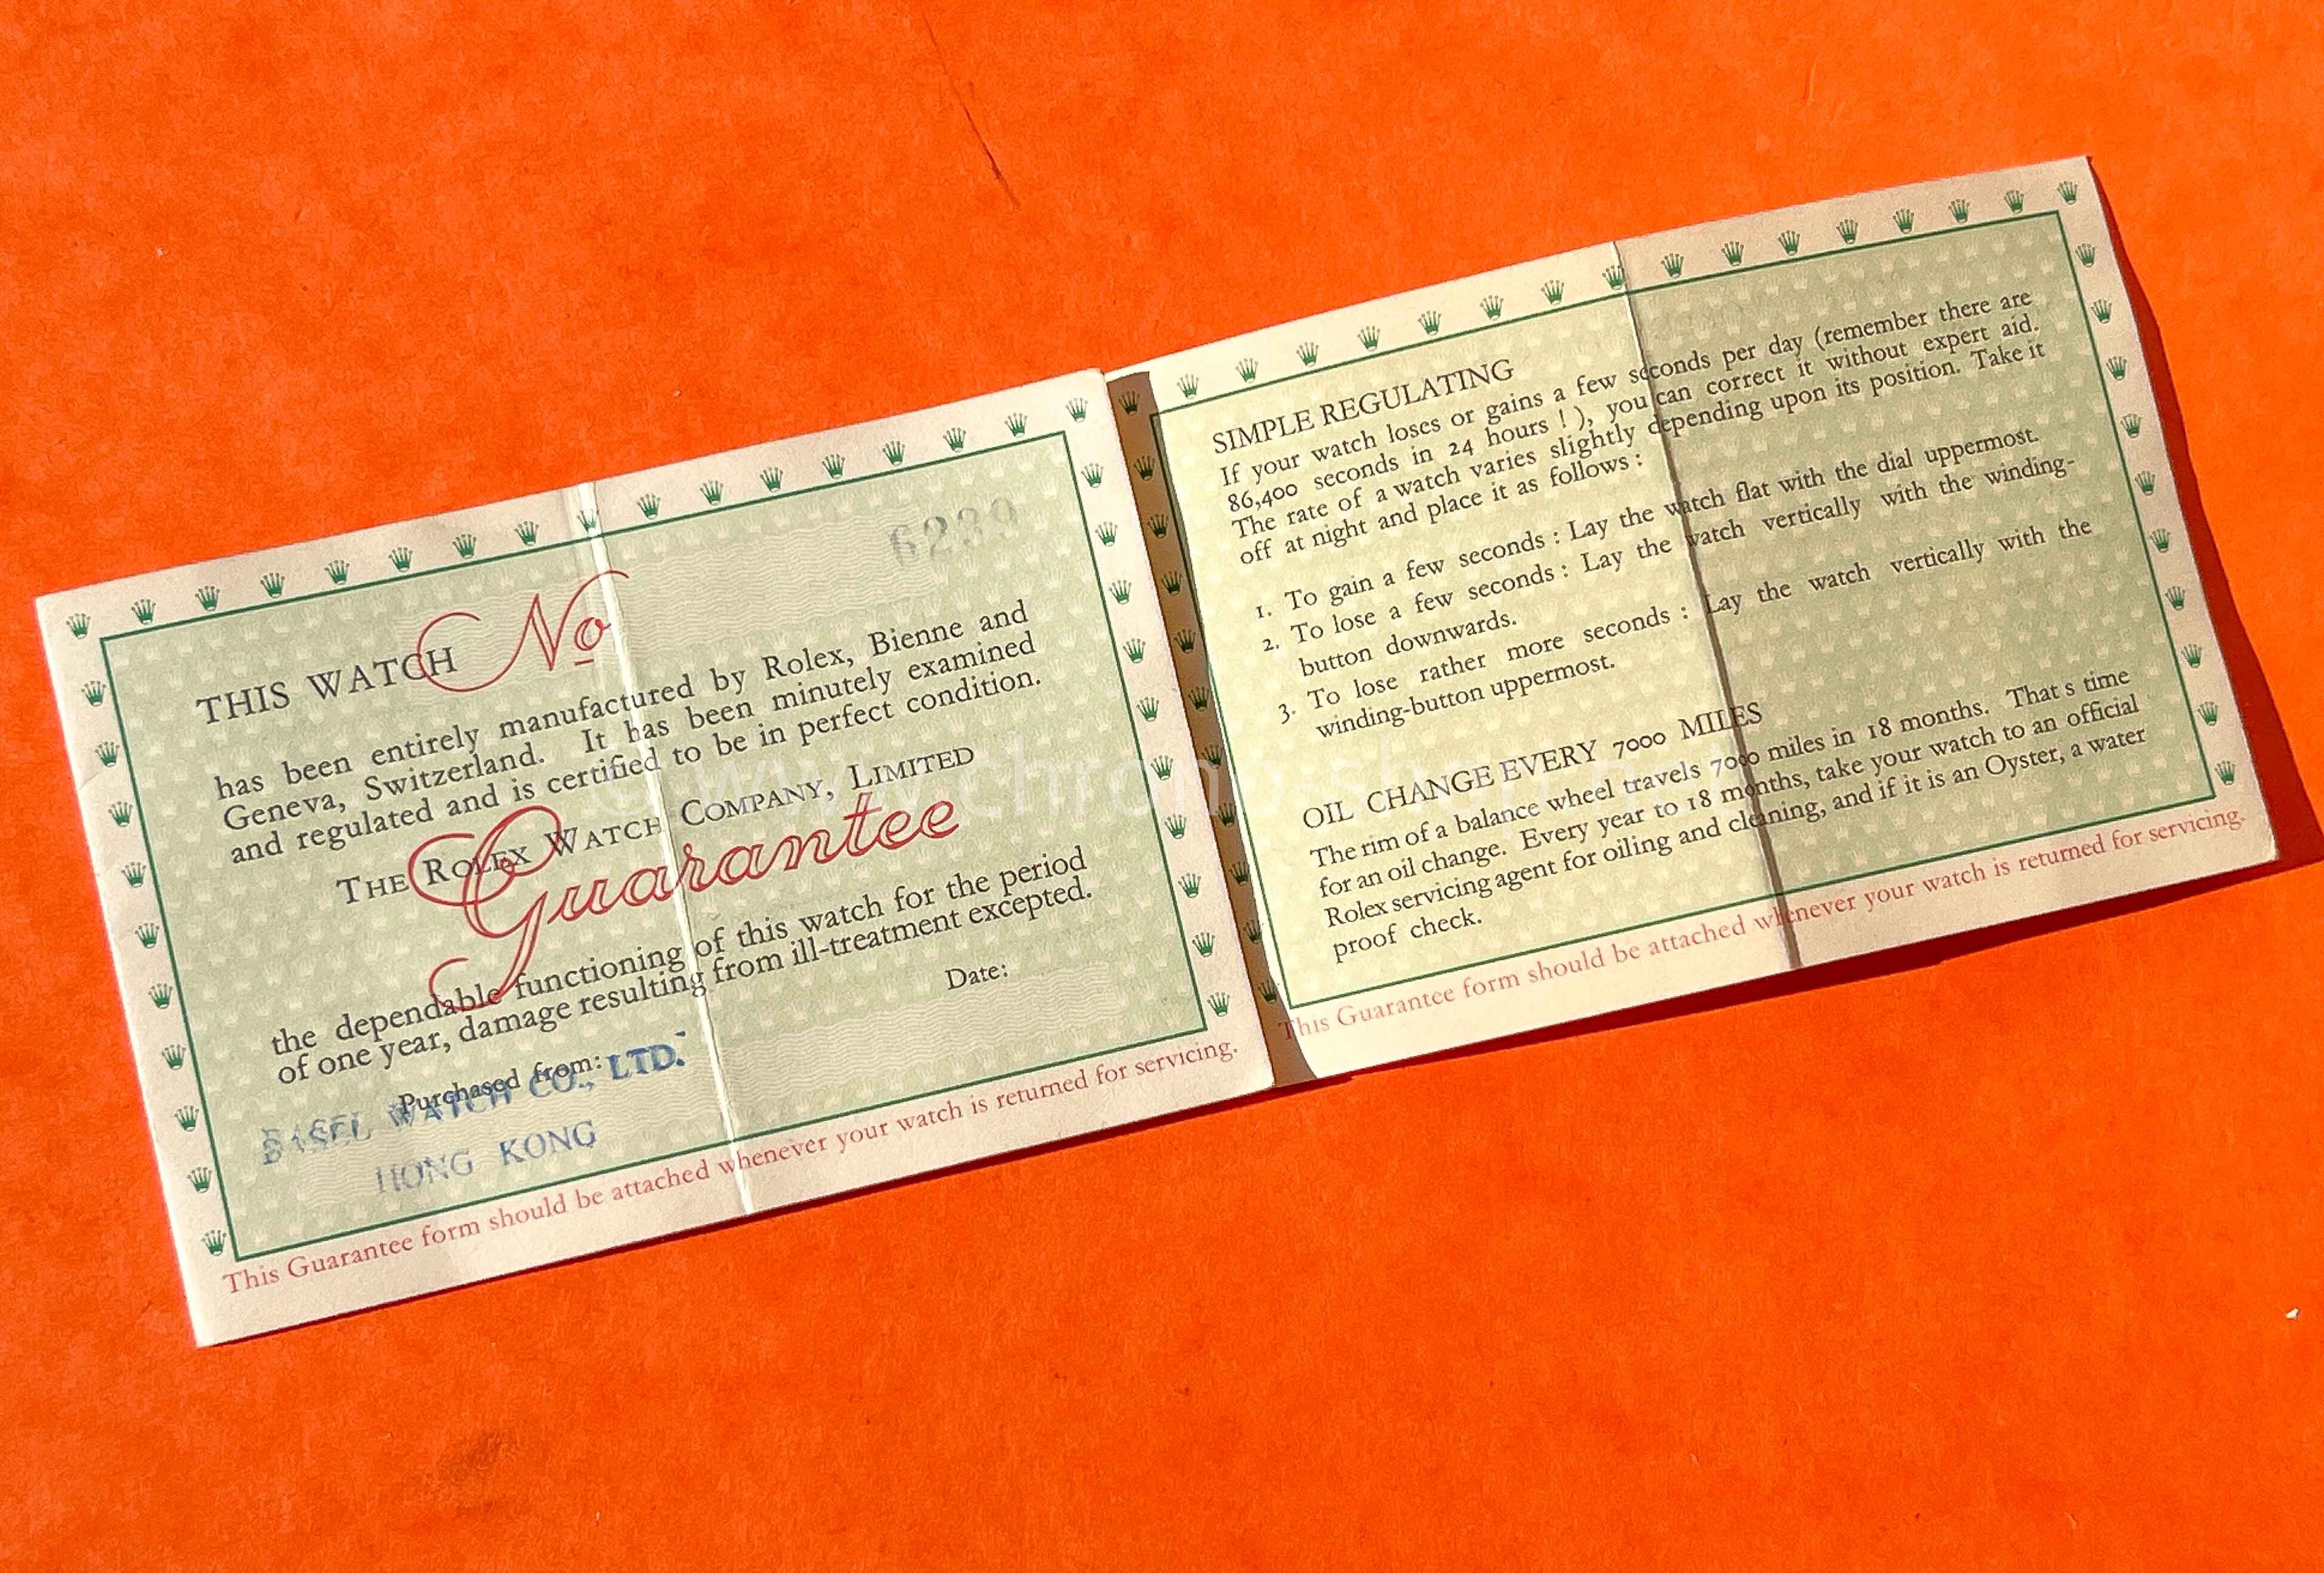 6239
THIS WATCH No
has been entirely manufactured by Rolex, Bienne and
Geneva, Switzerland. It has been minutely examined
and regulated and is certified to be in perfect condition.
THE ROLEX WATCH COMPANY, LIMITED
Guarantee
the dependable functioning of this watch for the period
of one year, damage resulting from ill-treatment excepted.
Purchased from: Date:
BASEL WATCH CO., LTD.
HONG KONG
This Guarantee form should be attached whenever your watch is returned for servicing.
SIMPLE REGULATING
If your watch loses or gains a few seconds per day (remember there are
86,400 seconds in 24 hours ! ), you can correct it without expert aid.
The rate of a watch varies slightly depending upon its position. Take it
off at night and place it as follows :
1. To gain a few seconds : Lay the watch flat with the dial uppermost.
2. To lose a few seconds : Lay the watch vertically with the winding-
button downwards.
3. To lose rather more seconds : Lay the watch vertically with the
winding-button uppermost.
OIL CHANGE EVERY 7000 MILES
The rim of a balance wheel travels 7000 miles in 18 months. That s time
for an oil change. Every year to 18 months, take your watch to an official
Rolex servicing agent for oiling and cleaning, and if it is an Oyster, a water
proof check.
This Guarantee form should be attached whenever your watch is returned for servicing.